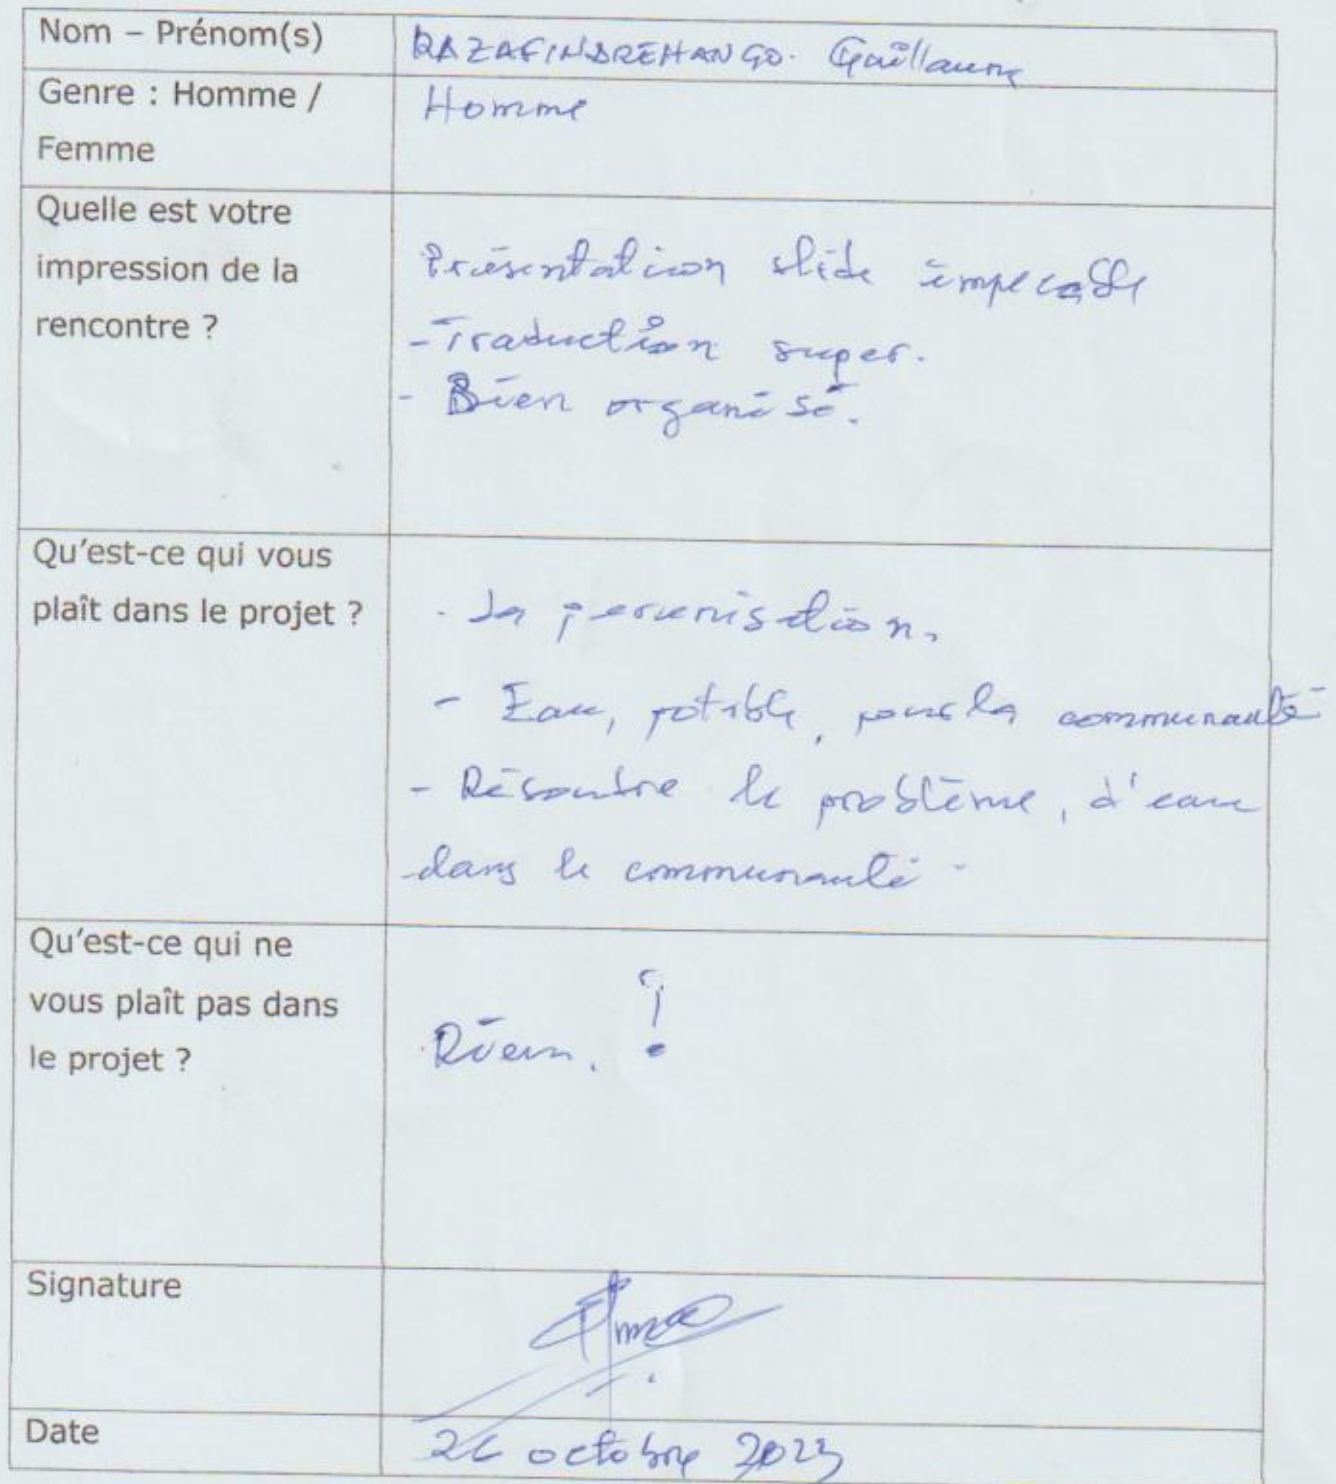 Nom – Prénom(s)
RAZAFINDREHANGO. Guillaume
Genre : Homme /
Femme
Homme
Quelle est votre
impression de la
rencontre ?
Présentation slide impecable
- Traduction super.
- Bien organisé.
Qu'est-ce qui vous
plaît dans le projet ?
- La perenisation.
- Eau, potable, pour la communauté
- Résoudre le problème, d'eau
dans le communauté -
Qu'est-ce qui ne
vous plaît pas dans
le projet ?
Rien. !
Signature
Date
26 octobre 2023